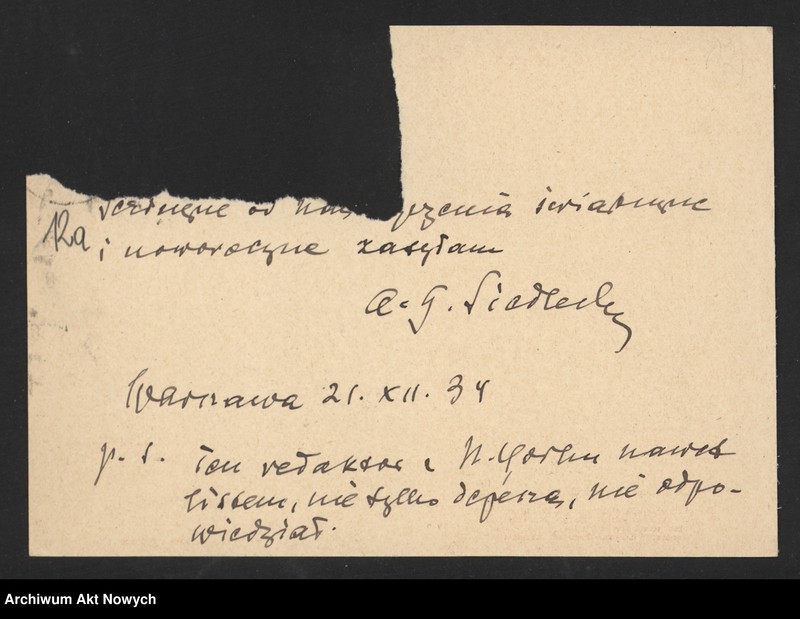 serdeczne od nas życzenia świąteczne
i noworoczne zasyłam
A. G. Siedlecki
Warszawa 21. XII. 34
p. s. Ten redaktor z N. Yorku nawet
listem, nie tylko depeszą, nie odpo-
wiedział.
12a
Archiwum Akt Nowych